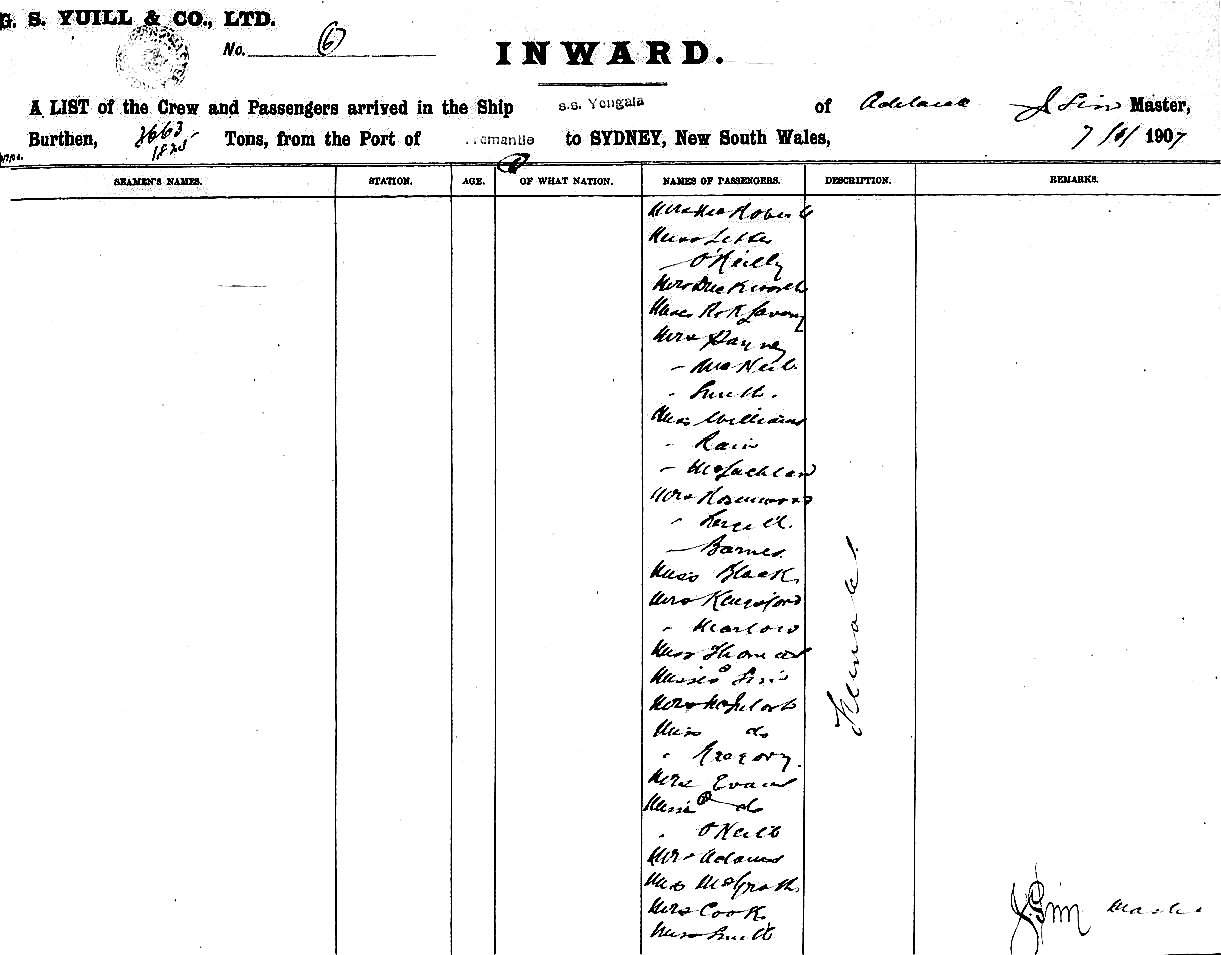 G. S. YUILL & CO., LTD.
No. 6
INWARD.
A LIST of the Crew and Passengers arrived in the Ship s.s. Yongala of Adelaide J Sim Master,
Burthen, 3663 1825 Tons, from the Port of Fremantle to SYDNEY, New South Wales, 7/6/1907
SEAMEN'S NAMES. STATION. AGE. OF WHAT NATION. NAMES OF PASSENGERS. DESCRIPTION. REMARKS.
O'Reilly
Mrs Duckworth
Mrs
" McNeil
" Smith.
Miss Williams
" Rain
" McLachlan
Mrs
Barnes
Miss Black
Mrs
" Marlow
Miss Thomas
Misses Sim
Mrs McIntosh
Miss do
" Gregory.
Mrs Evans
Miss do
" O'Neill
Mrs Adams
Miss McGrath
Mrs Cook
Miss Smith
Female
J. Sim Master